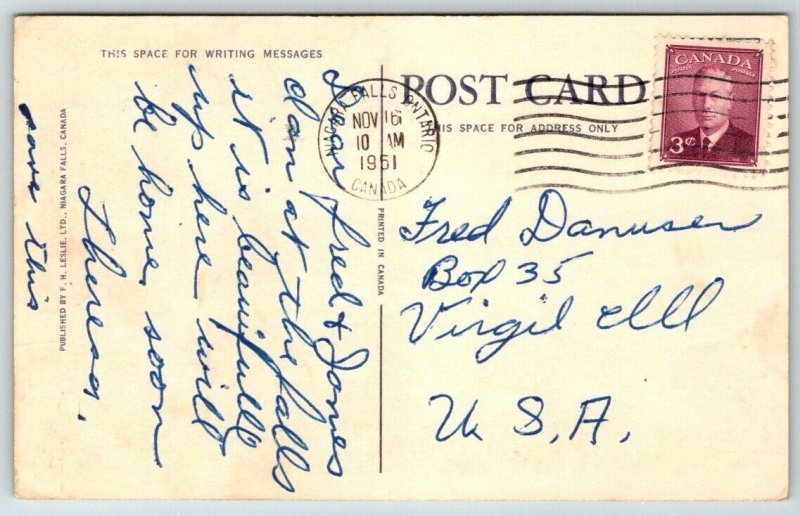 THIS SPACE FOR WRITING MESSAGES
Dear Fred & Jones
dam at the falls
it is beautifull
up here will
be home soon
Theresa.
save this
PUBLISHED BY F. H. LESLIE, LTD., NIAGARA FALLS, CANADA
PRINTED IN CANADA
POST CARD
THIS SPACE FOR ADDRESS ONLY
NIAGARA FALLS ONTARIO
NOV 16
10 AM
1951
CANADA
CANADA
POSTES POSTAGE
3¢
Fred Danuser
Box 35
Virgil Ill
U. S. A.